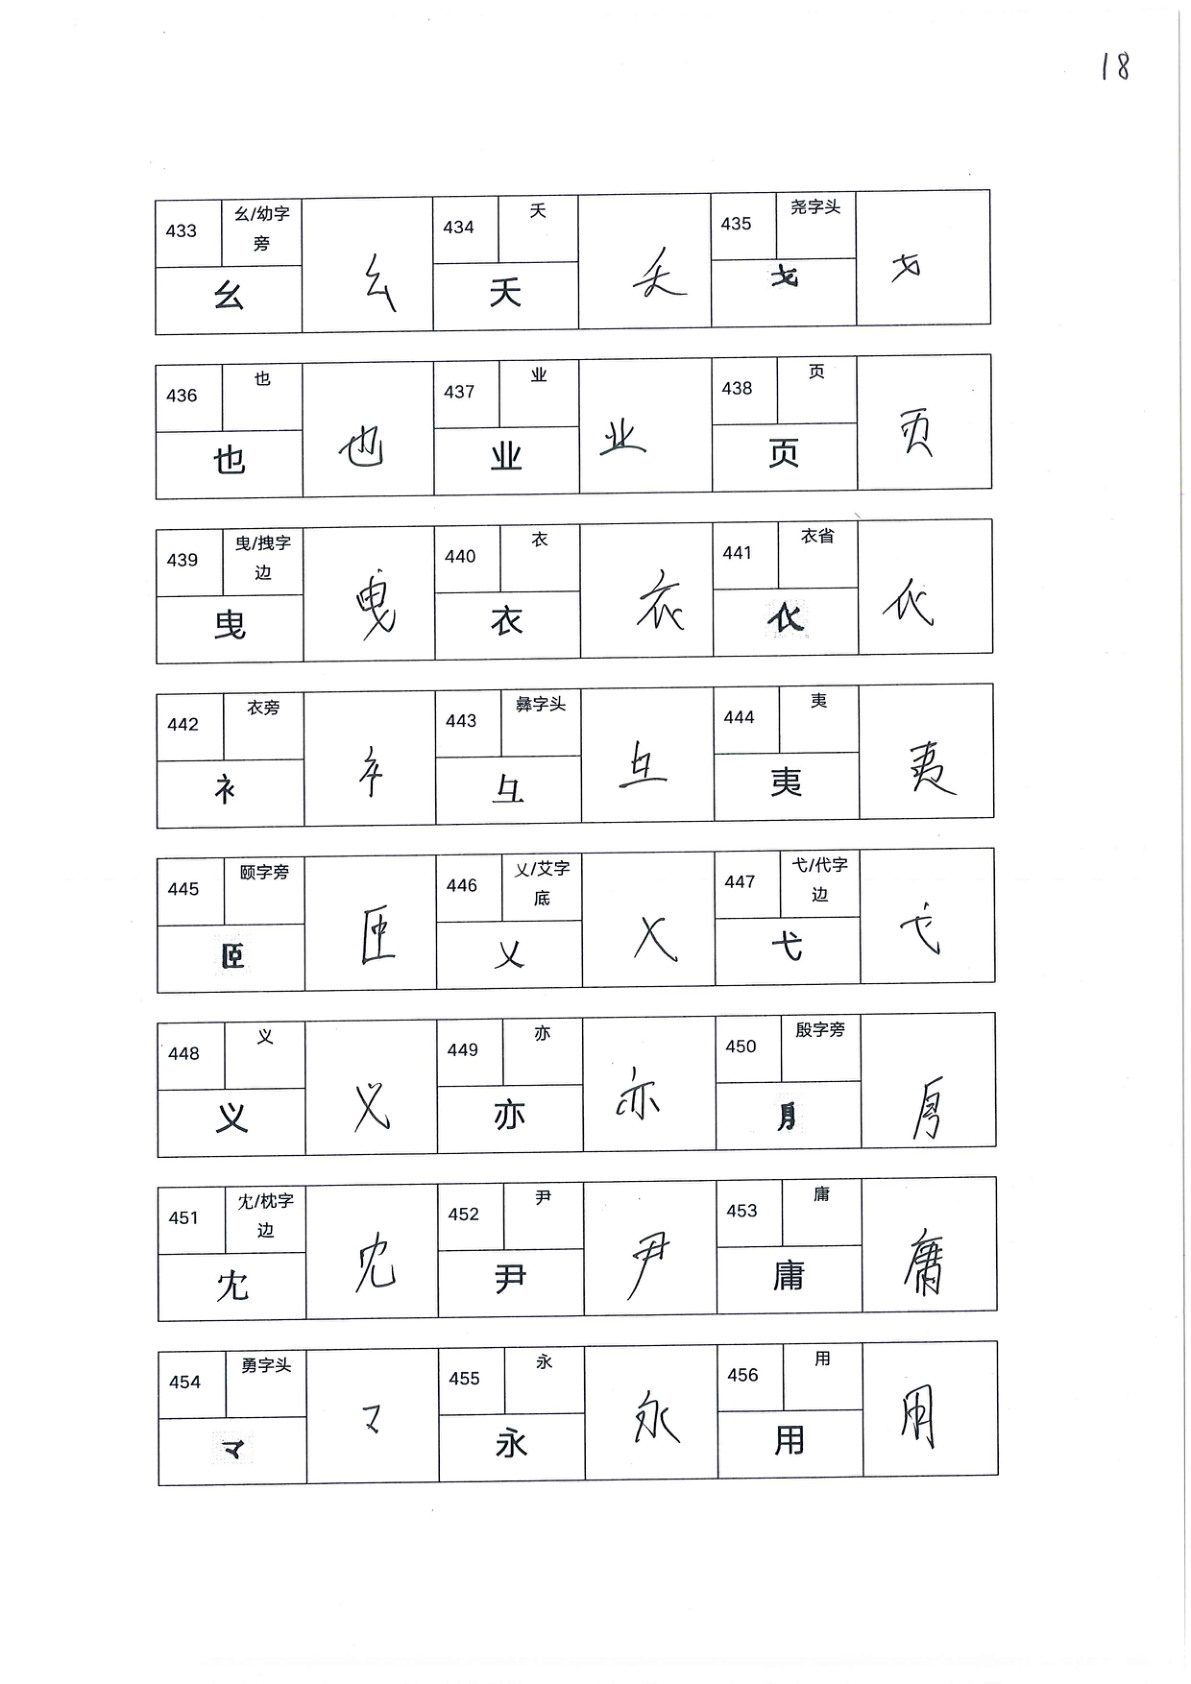 18
433 幺/幼字旁 幺 幺 434 夭 夭 夭 435 尧字头 
436 也 也 也 437 业 业 业 438 页 页 页
439 曳/拽字边 曳 曳 440 衣 衣 衣 441 衣省 
442 衣旁 衤 443 彝字头 彑 彑 444 夷 夷 夷
445 颐字旁 𦣞 446 乂/艾字底 乂 乂 447 弋/代字边 弋 弋
448 义 义 义 449 亦 亦 亦 450 殷字旁 
451 冘/枕字边 冘 冘 452 尹 尹 尹 453 庸 庸 庸
454 勇字头 龴 龴 455 永 永 永 456 用 用 用